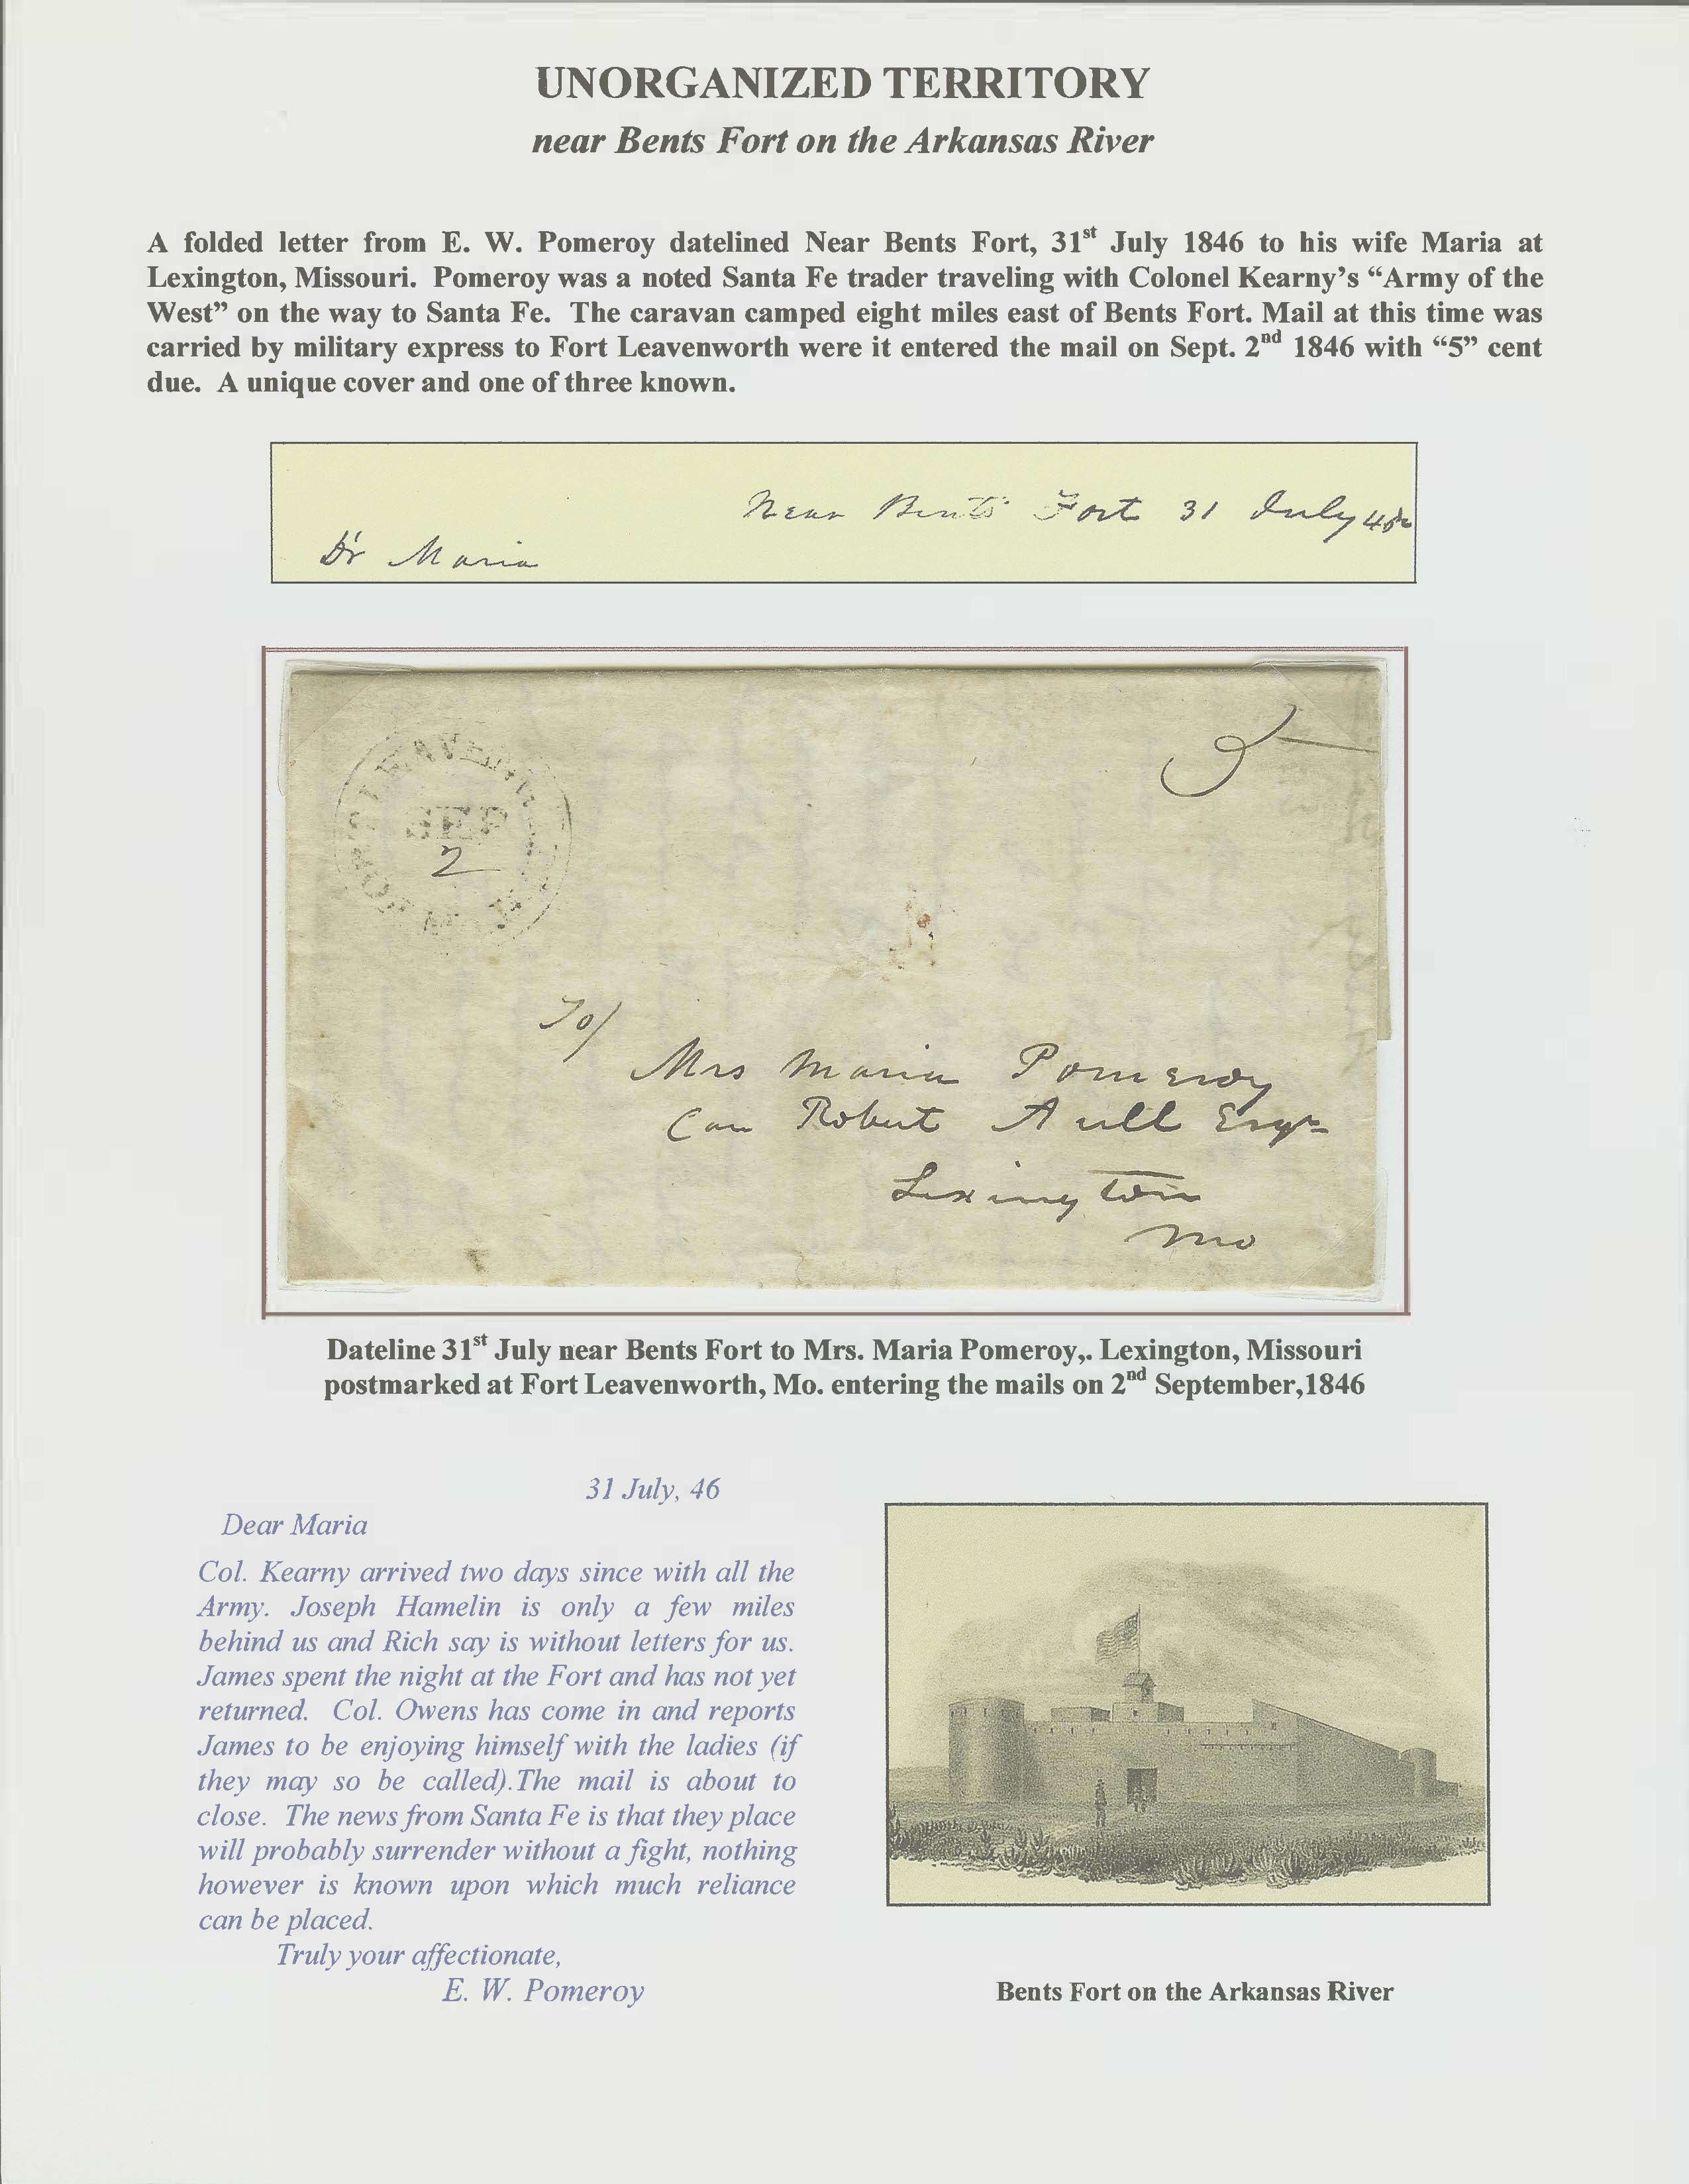 UNORGANIZED TERRITORY
near Bents Fort on the Arkansas River
A folded letter from E. W. Pomeroy datelined Near Bents Fort, 31st July 1846 to his wife Maria at
Lexington, Missouri. Pomeroy was a noted Santa Fe trader traveling with Colonel Kearny's “Army of the
West” on the way to Santa Fe. The caravan camped eight miles east of Bents Fort. Mail at this time was
carried by military express to Fort Leavenworth were it entered the mail on Sept. 2nd 1846 with “5” cent
due. A unique cover and one of three known.
Near Bents Fort 31 July 46
Dr Maria
5
SEP
2
To/
Mrs Maria Pomeroy
Care Robert Aull Esqr
Lexington
Mo
Dateline 31st July near Bents Fort to Mrs. Maria Pomeroy,. Lexington, Missouri
postmarked at Fort Leavenworth, Mo. entering the mails on 2nd September,1846
31 July, 46
Dear Maria
Col. Kearny arrived two days since with all the
Army. Joseph Hamelin is only a few miles
behind us and Rich say is without letters for us.
James spent the night at the Fort and has not yet
returned. Col. Owens has come in and reports
James to be enjoying himself with the ladies (if
they may so be called).The mail is about to
close. The news from Santa Fe is that they place
will probably surrender without a fight, nothing
however is known upon which much reliance
can be placed.
Truly your affectionate,
E. W. Pomeroy
Bents Fort on the Arkansas River